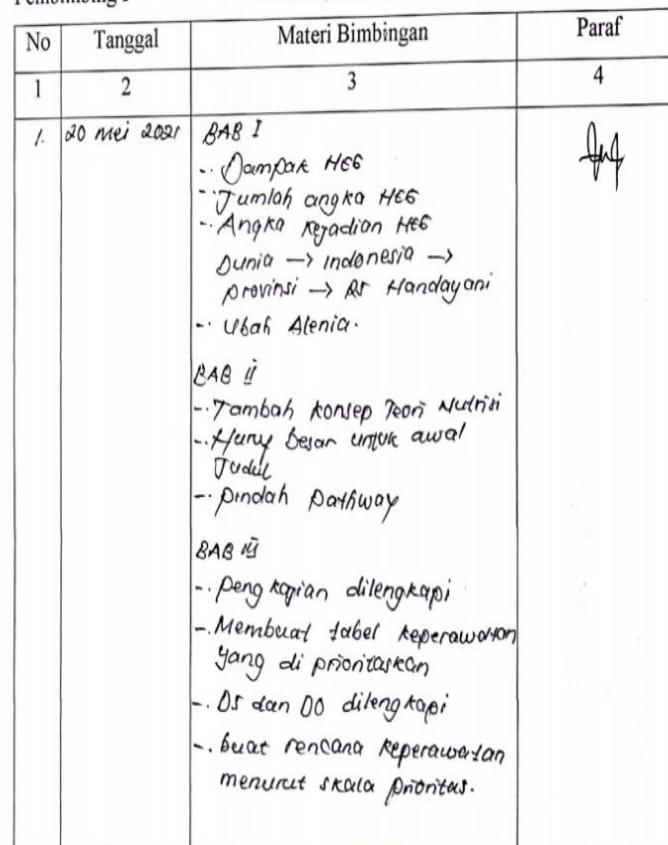 Pembimbing I
No Tanggal Materi Bimbingan Paraf
1 2 3 4
1. 20 Mei 2021 BAB I
-. Dampak HEG
-. Jumlah angka HEG
-. Angka Kejadian HEG
Dunia → Indonesia →
provinsi → RS Handayani
-. Ubah Alenia.
BAB II
-. Tambah konsep Teori Nutrisi
-. Huruf besar untuk awal
Judul
-. pindah pathway
BAB III
-. pengkajian dilengkapi
-. Membuat tabel keperawatan
yang di prioritaskan
-. DS dan DO dilengkapi
-. buat rencana keperawatan
menurut skala prioritas.